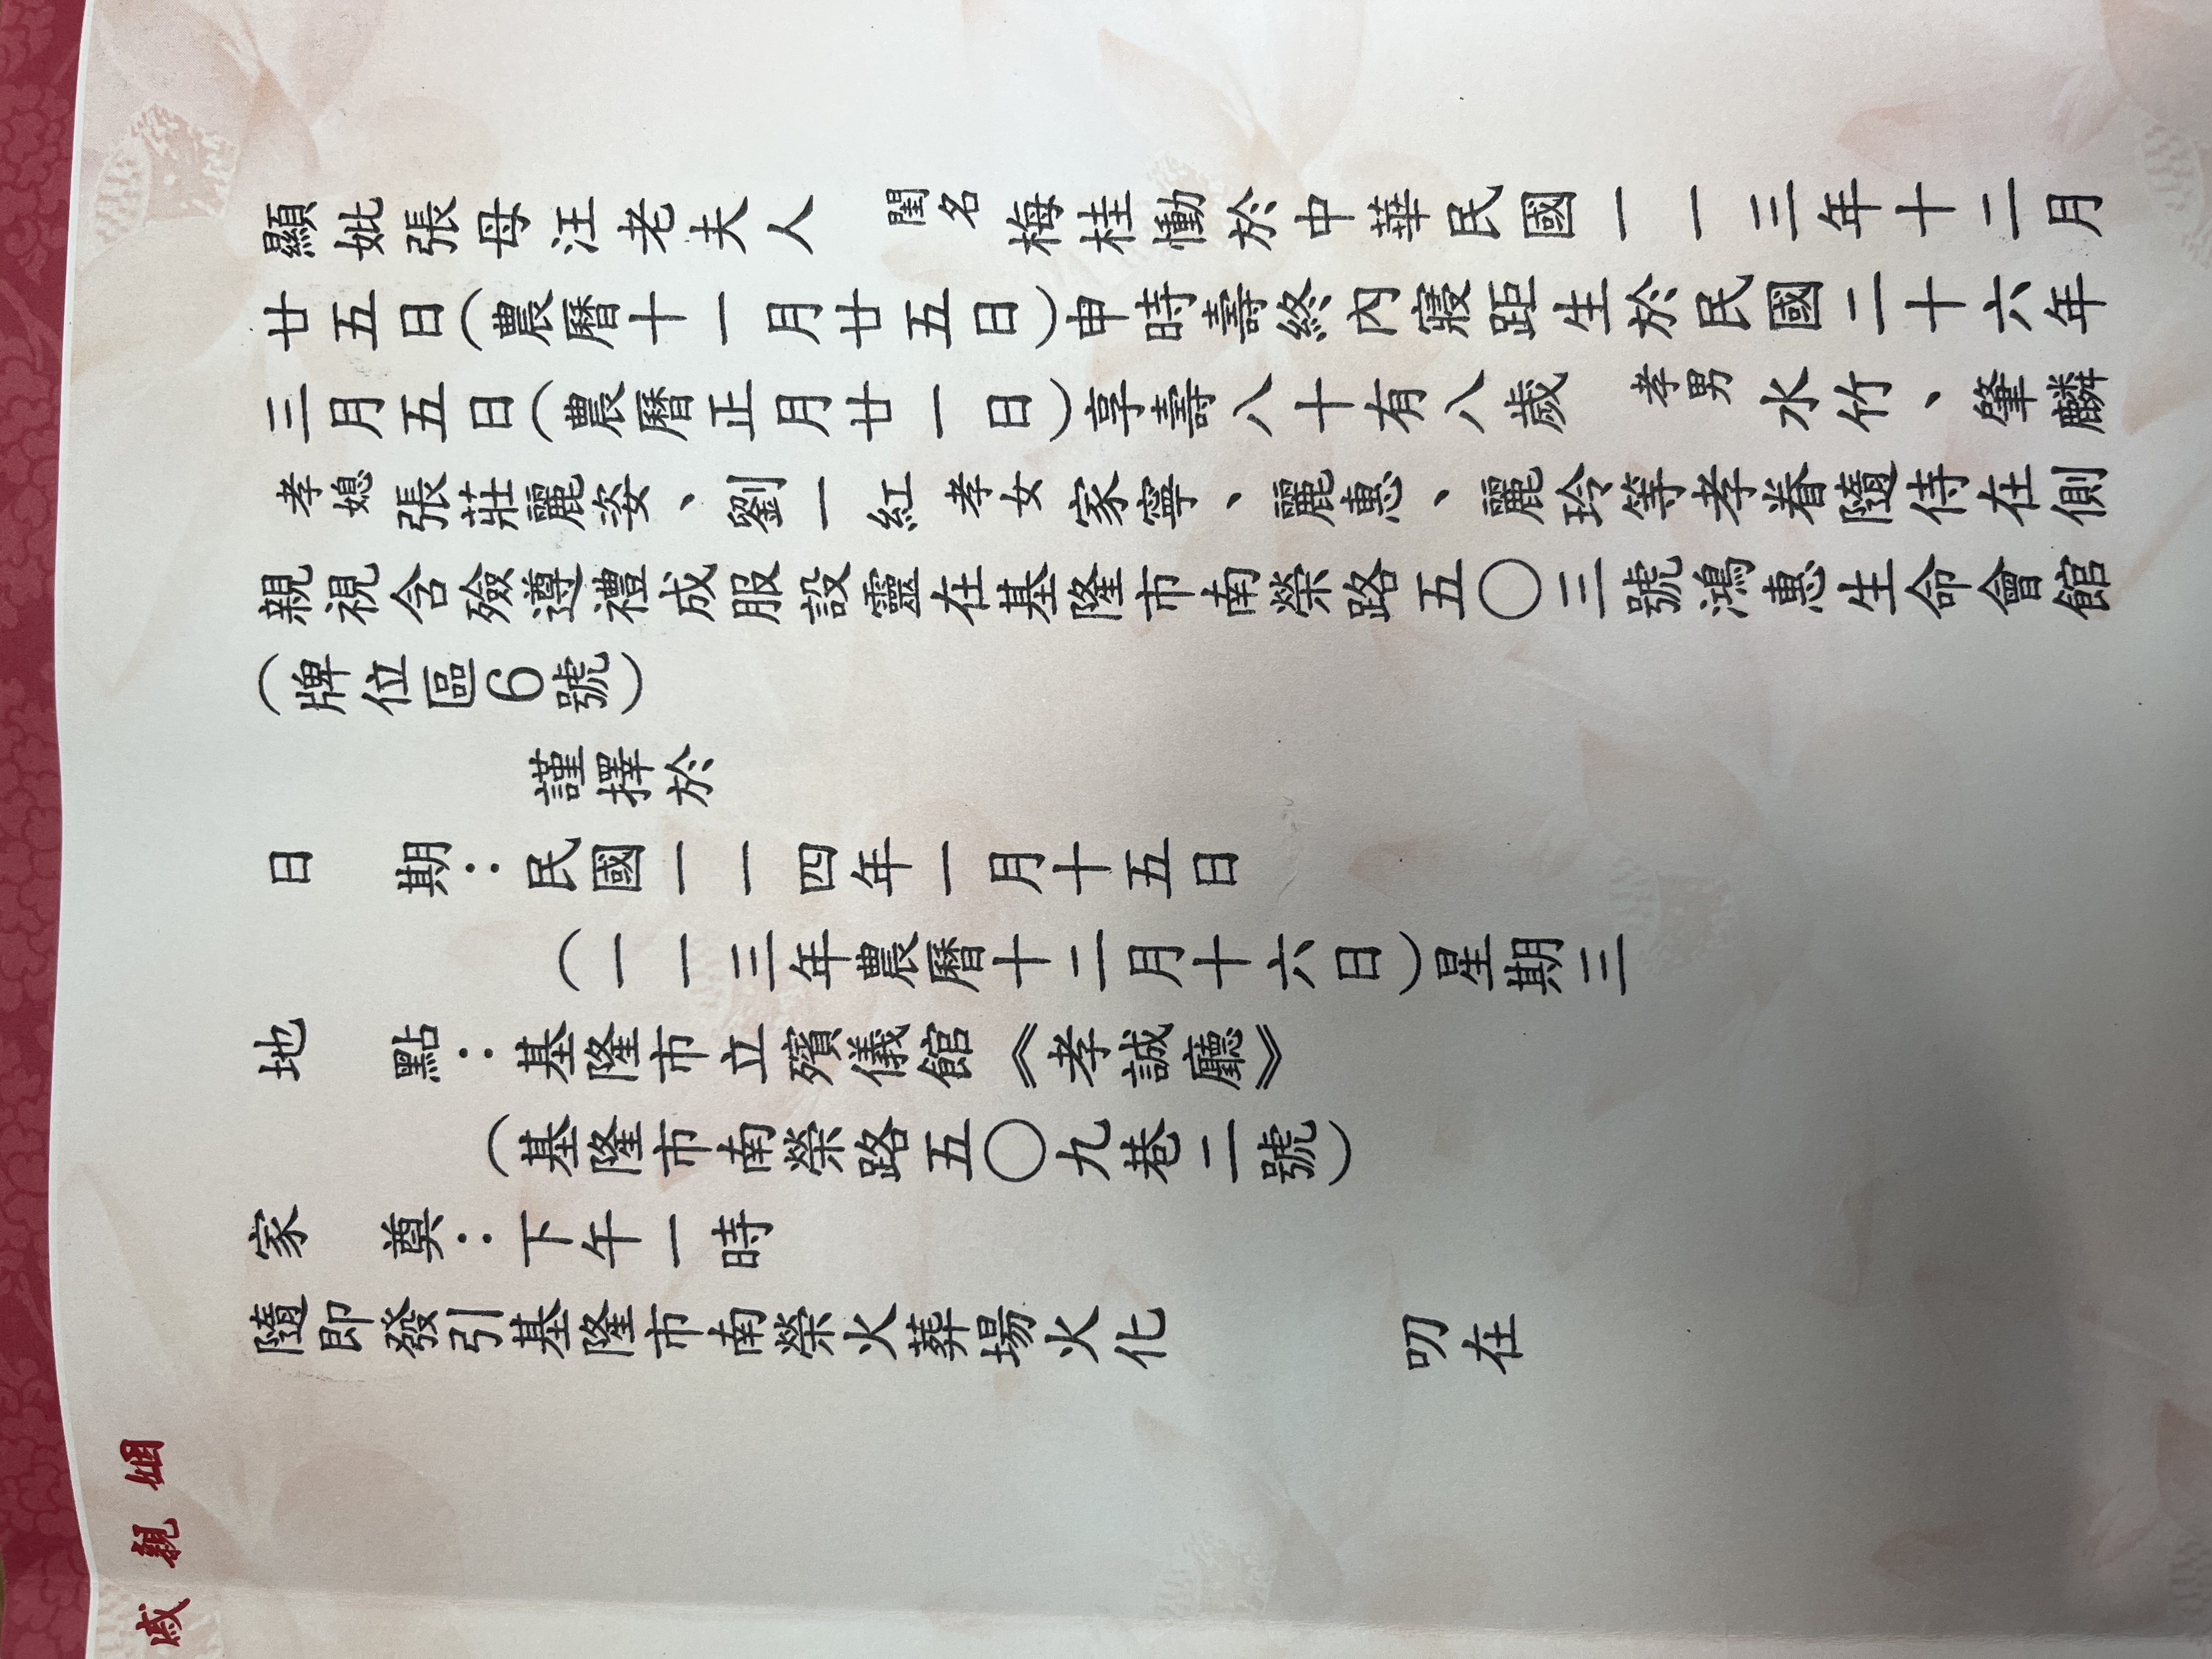 顯妣張母汪老夫人 閨名 梅桂慟於中華民國一一三年十二月
廿五日(農曆十一月廿五日)申時壽終內寢距生於民國二十六年
三月五日(農曆正月廿一日)享壽八十有八歲 孝男 水竹、肇麟
孝媳 張莊麗姿、劉一紅 孝女 家寧、麗惠、麗玲等孝眷隨侍在側
親視含殮遵禮成服設靈在基隆市南榮路五〇三號鴻惠生命會館
(牌位區6號)
謹擇於
日 期:民國一一四年一月十五日
(一一三年農曆十二月十六日)星期三
地 點:基隆市立殯儀館《孝誠廳》
(基隆市南榮路五〇九巷二號)
家 奠:下午一時
隨即發引基隆市南榮火葬場火化 叨在
姻
親
戚